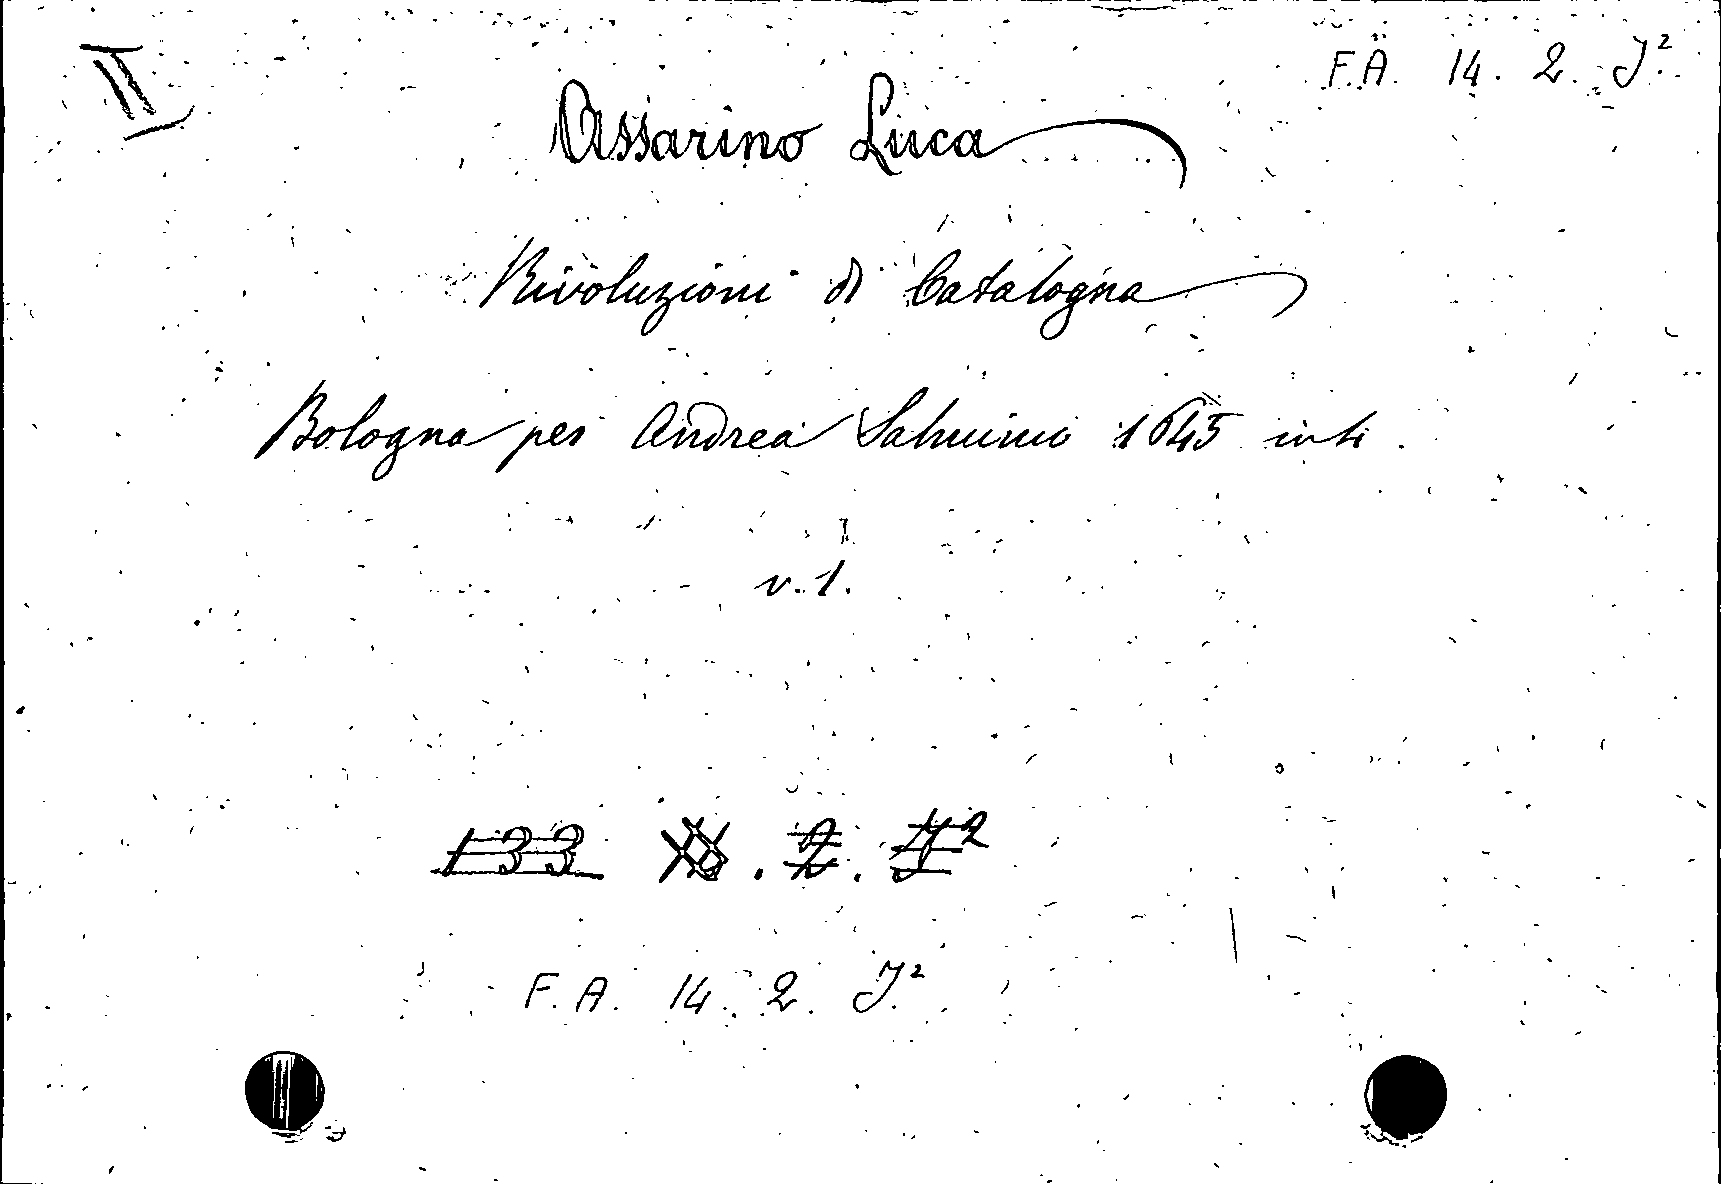 II
F.A. 14. 2. J²
Assarino Luca
Rivoluzioni di Catalogna
Bologna per Andrea Salmini 1645 in 4
v. 1.
133 . 2. J²
F. A. 14. 2. J²